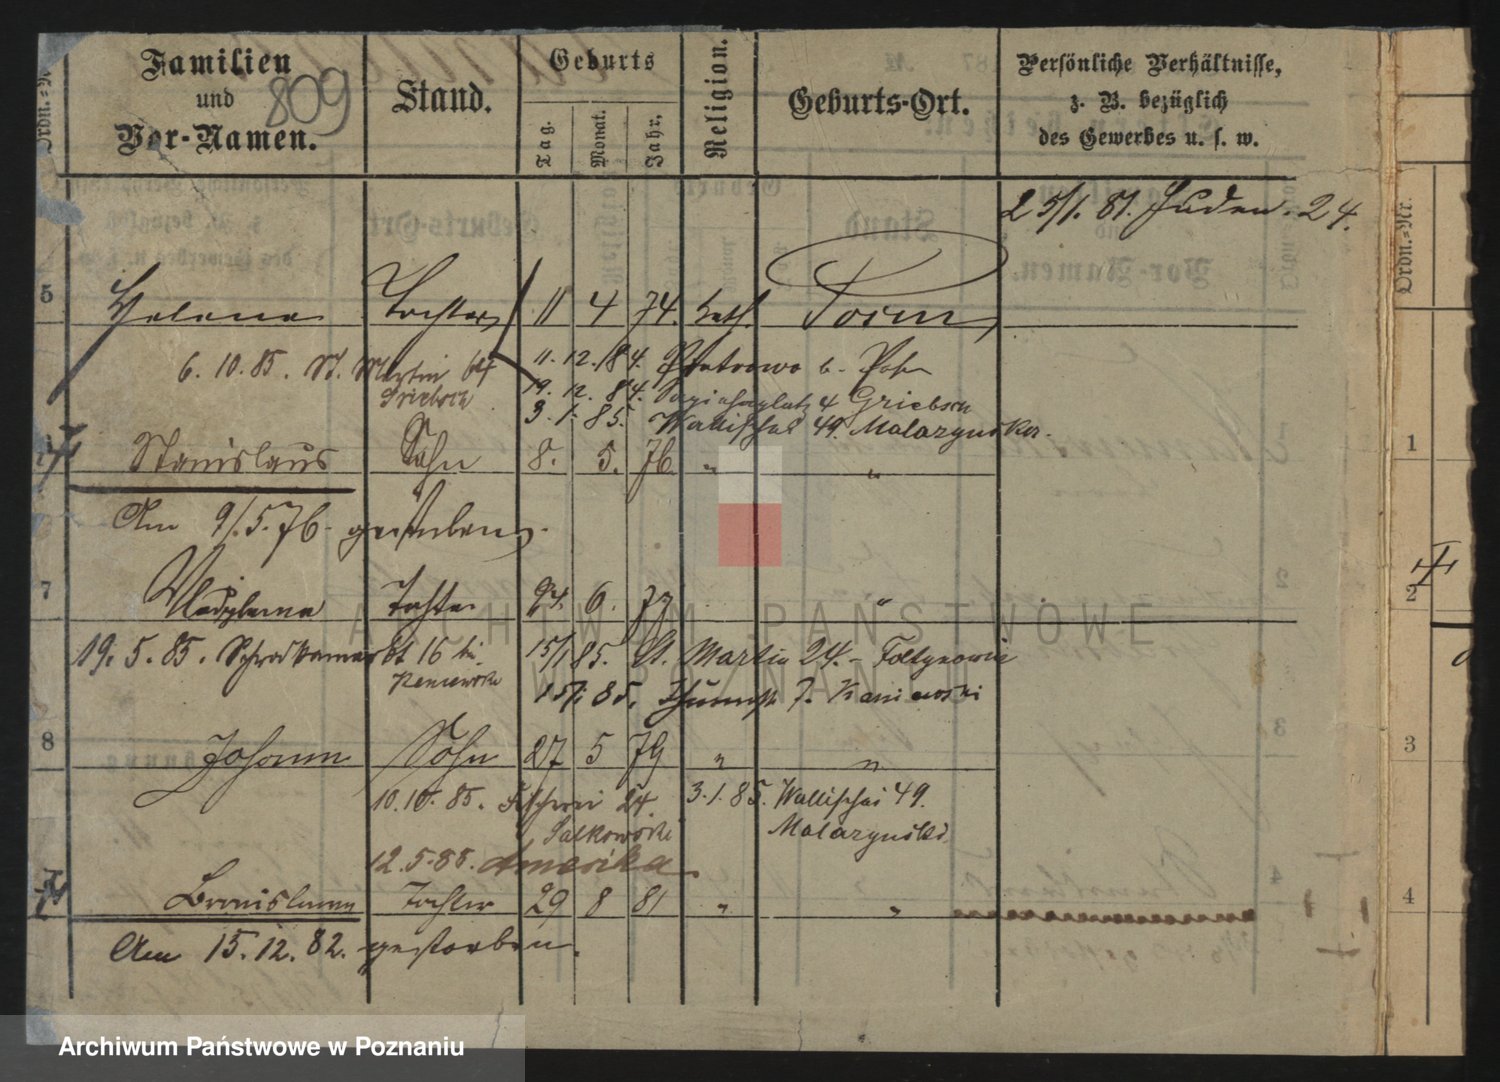 Ordn.=N
Familien
und
Vor-Namen.
809
Stand.
Geburts
Tag.
Monat.
Jahr.
Religion.
Geburts-Ort.
Persönliche Verhältnisse,
z. B. bezüglich
des Gewerbes u. s. w.
Ordn.=Nr.
25/1. 81. Juden. 24.
5 Helena Tochter 11 4 74. kath. Posen
6. 10. 85. St. Martin 64 11. 12. 84. Piotrowo b. Posen
Griebsch 19. 12. 84. Sapiehaplatz 4 Griebsch
3. 1. 85. Wallischei 49. Malazynska.
Stanislaus Sohn 8. 5. 76 " "
Am 9/5. 76. gestorben.
7 Wladyslawa Tochter 24. 6. 77 "
19. 5. 85. bt 16 bei 15/1 85. St. Martin 24. - Foltynowicz
Kaniewski 15/1. 85. 7. Kaniewski
8 Johann Sohn 27 5 79 " "
10. 10. 85. Fischerei 24 3. 1. 85. Wallischei 49.
Salkowski Malazynski.
12. 5. 88. Amerika.
Bronislawa Tochter 29 8 81 " "
Am 15. 12. 82. gestorben.
1
2
3
4
ARCHIWUM PAŃSTWOWE
W POZNANIU
Archiwum Państwowe w Poznaniu